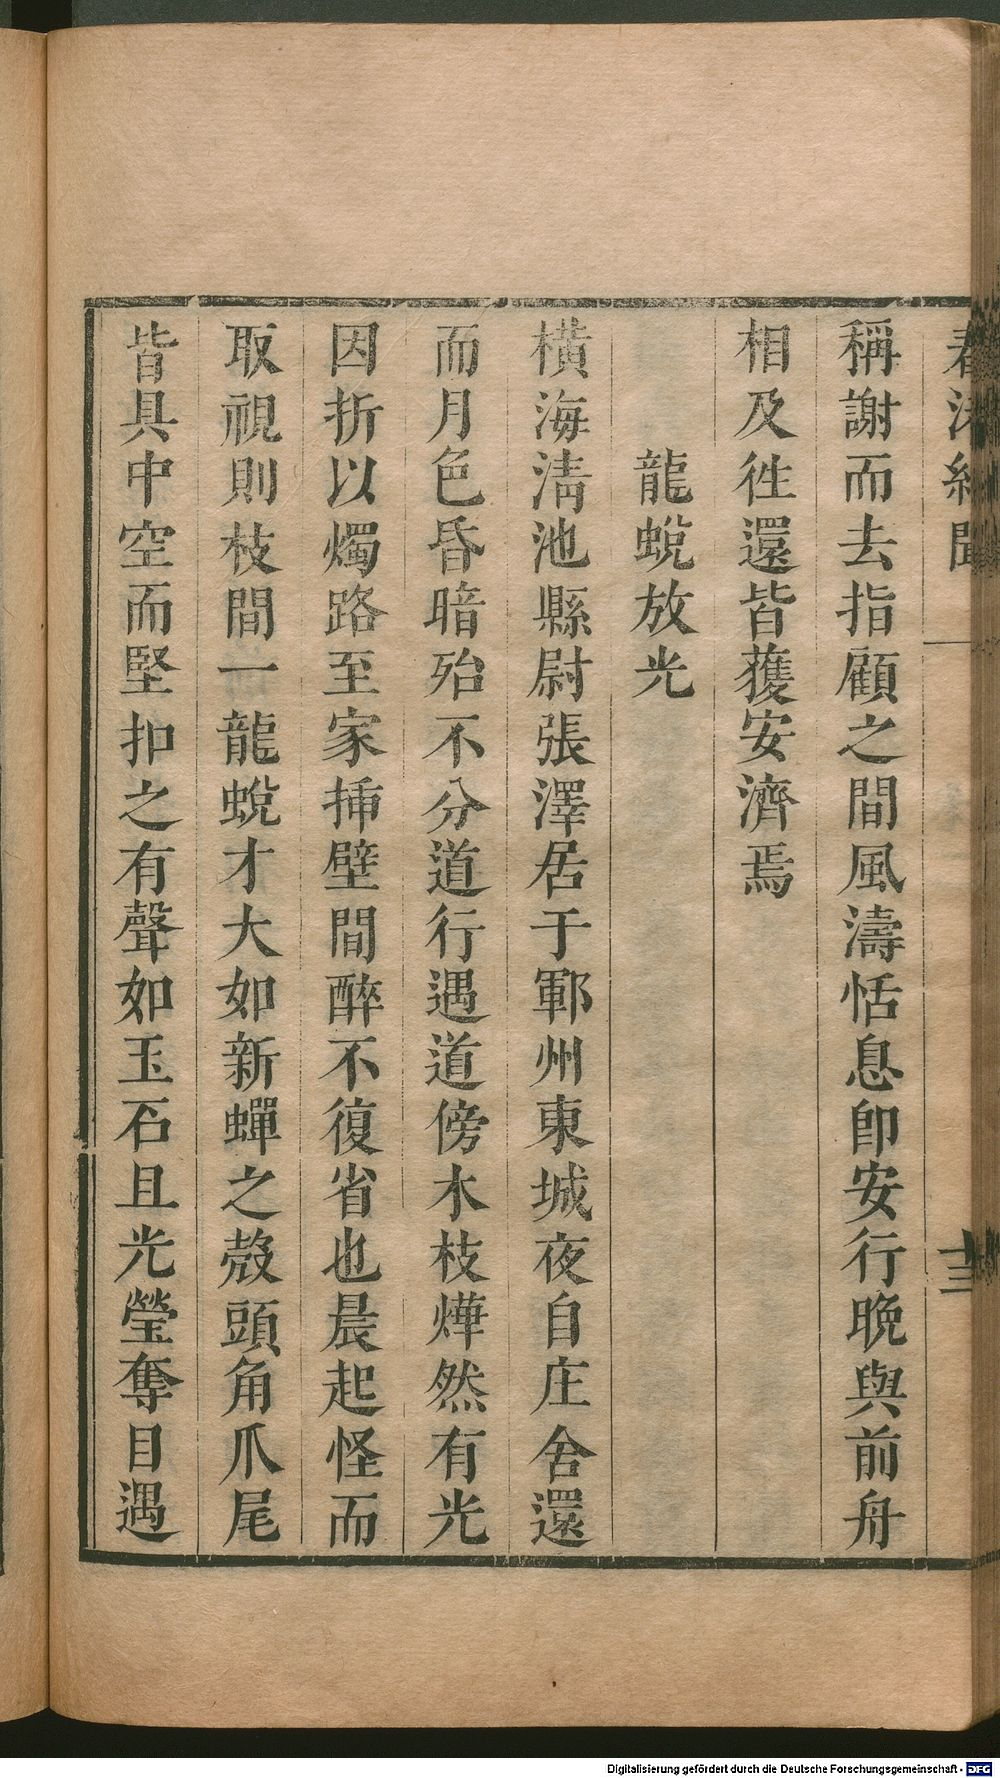 春渚紀聞 十三
稱謝而去指顧之間風濤恬息卽安行晚與前舟
相及徃還皆獲安濟焉
龍蛻放光
橫海淸池縣尉張澤居于鄆州東城夜自庄舍還
而月色昏暗殆不分道行遇道傍木枝燁然有光
因折以燭路至家揷壁間醉不復省也晨起怪而
取視則枝間一龍蛻才大如新蟬之殼頭角爪尾
皆具中空而堅扣之有聲如玉石且光瑩奪目遇
Digitalisierung gefördert durch die Deutsche Forschungsgemeinschaft - DFG